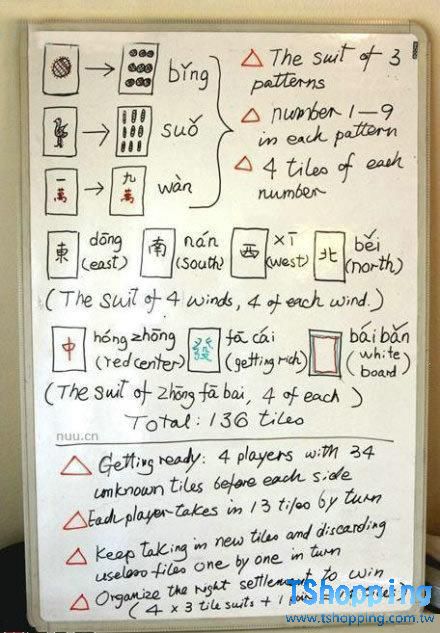 bǐng
suǒ
一萬 九萬 wàn
△ The suit of 3
patterns
△ number 1—9
in each pattern
△ 4 tiles of each
number
東 dōng 南 nán 西 xī 北 běi
(east) (south) (west) (north)
(The suit of 4 winds, 4 of each wind.)
中 hóng zhōng fā cái bái bǎn
(red center) (getting rich) (white
board)
(The suit of zhōng fā bai, 4 of each)
Total: 136 tiles
nuu.cn
△ Getting ready: 4 players with 34
unknown tiles before each side
△ Each player takes in 13 tiles by turn
△ Keep taking in new tiles and discarding
useless tiles one by one in turn
△ Organize the right settlement to win
(4 x 3 tile suits + 1
TShopping
www.tshopping.com.tw